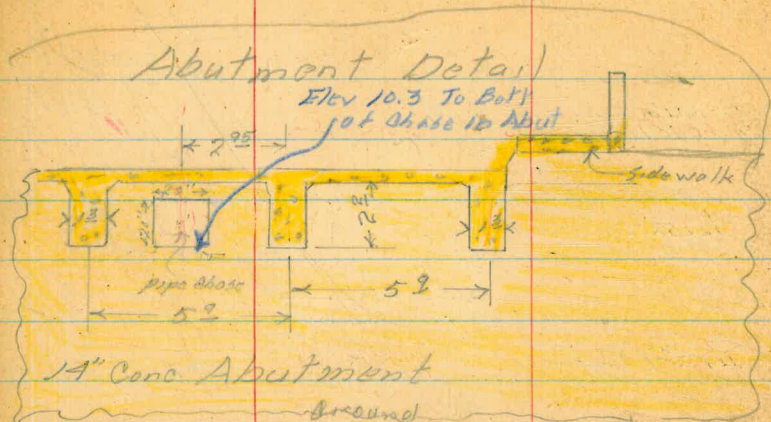 Abutment Detail
Elev 10.3 To Bott
of Chase in Abut
2 95
Sidewalk
20"
20"
1 3
2 8
1 3
pipe chase
5 9
5 9
14" Conc Abutment
Ground